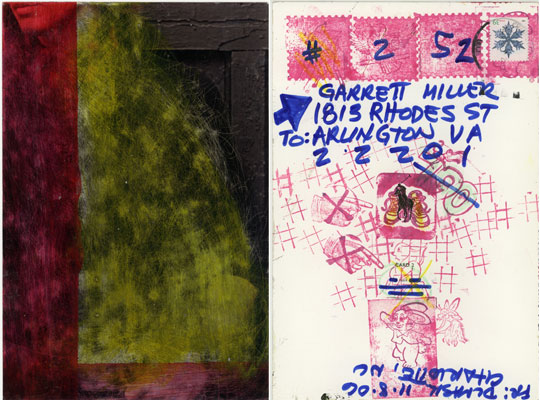 # 2 52
GARRETT MILLER
1813 RHODES ST
TO: ARLINGTON VA
2 2 2 0 1
CARD 2
11.8.06
CHARLOTTE, NC